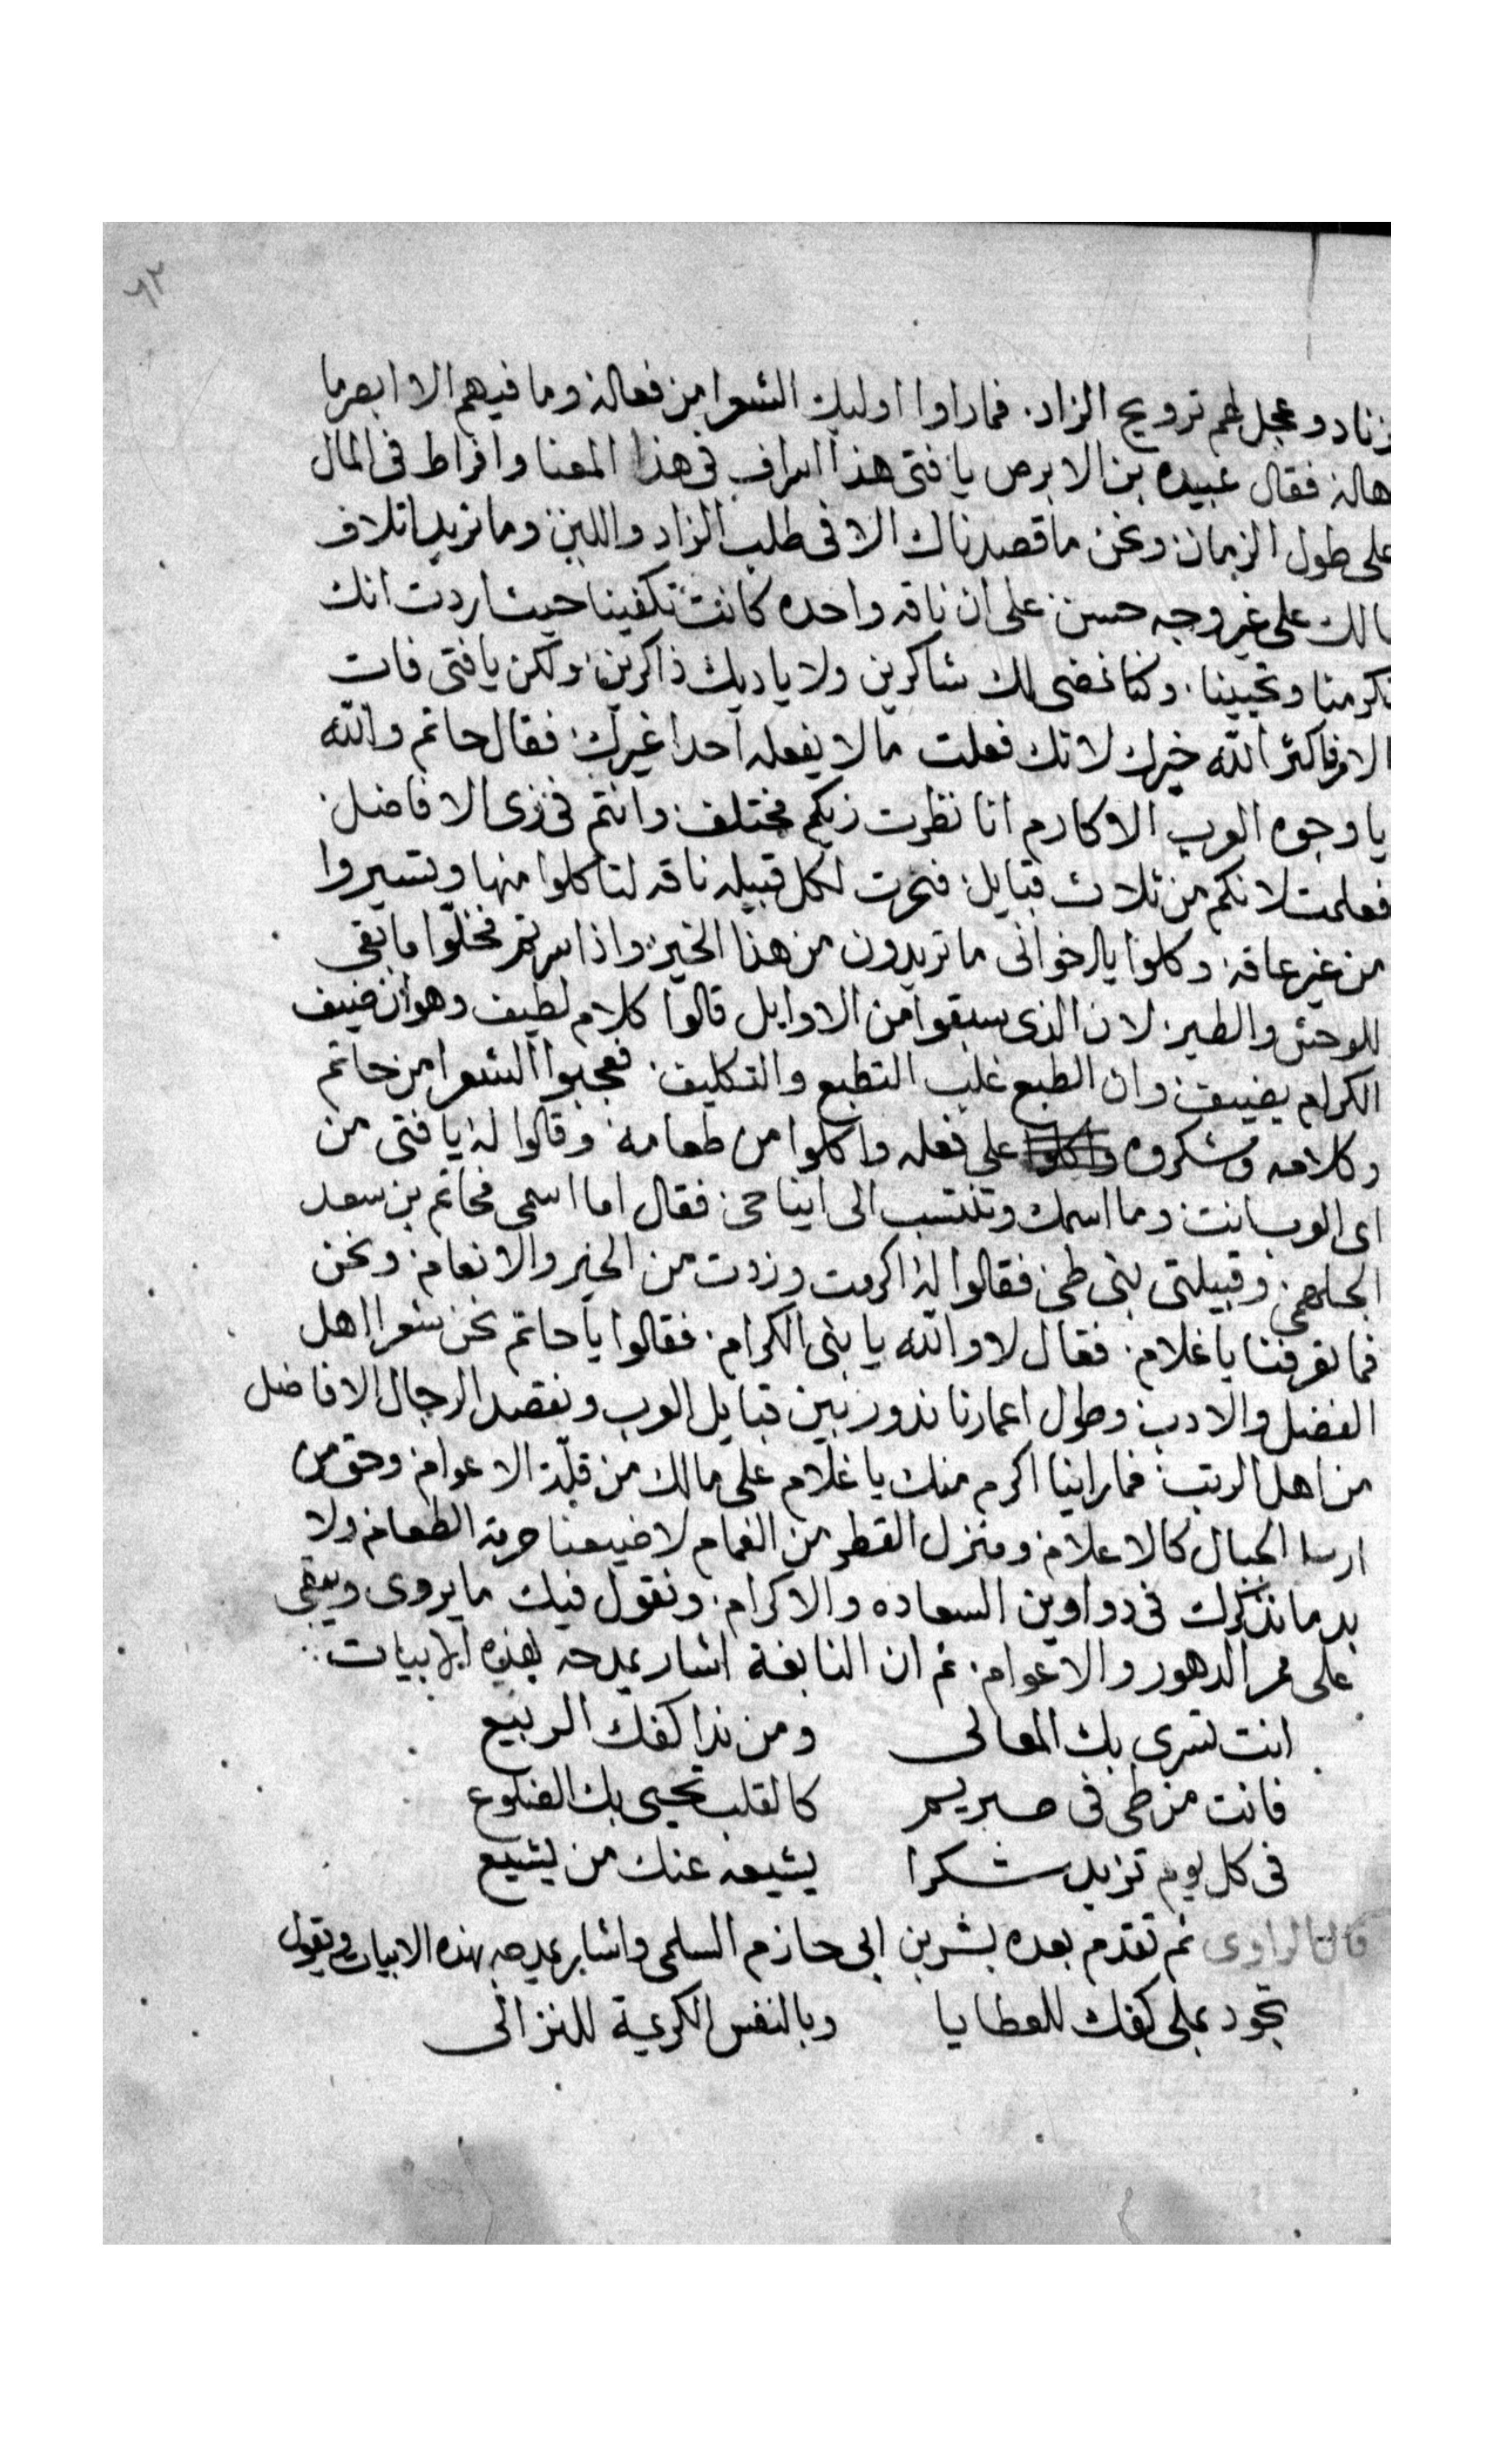 ٦٢
زناد وعجل لهم ترويج الزاد. فما راوا اوليك الشعرا من فعاله وما فيهم الا ابصر ما
هاله فقال عبيده بن الابرص يا فتى هذا اسراف فى هذا المعنا وافراط فى المال
على طول الزمان ونحن ما قصدناك الا فى طلب الزاد واللبن وما نريد اتلاف
مالك على غير وجه حسن على ان ناقه واحده كانت تكفينا حيث اردت انك
تكرمنا وتحيينا. وكنا نمضى لك شاكرين ولاياديك ذاكرين ولكن يا فتى فات
الامر فاكثر الله خيرك لانك فعلت ما لا يفعله احدا غيرك فقال حاتم والله
يا وجوه العرب الاكارم انا نظرت زيكم مختلف وانتم فى زى الافاضل.
فعلمت لانكم من ثلاث قبايل فنحرت لكل قبيله ناقه لتاكلوا منها وتسيروا
من غير عاقه وكلوا يا اخوانى ما تريدون من هذا الخير واذا سرتم فخلوا ما بقى
للوحش والطير لان الذى سبقوا من الاوايل قالوا كلام لطيف وهو ان ضيف
الكرام يضيف وان الطبع غلب التطبع والتكليف. فعجبوا الشعرا من حاتم
وكلامه وشكروه على فعله واكلوا من طعامه وقالوا له يا فتى من
اى العرب انت وما اسمك وتنتسب الى اينا حى فقال اما اسمى فحاتم بن سعد
الجلهمى وقبيلتى بنى طى فقالوا له اكرمت وزدت من الخير والانعام ونحن
فما تعرفنا يا غلام. فقال لا والله يا بنى الكرام. فقالوا يا حاتم نحن شعرا اهل
الفضل والادب وطول اعمارنا ندور بين قبايل العرب ونقصد الرجال الافاضل
من اهل الرتب فما راينا اكرم منك يا غلام على مالك من قلة الاعوام وحق من
ارسا الجبال كالاعلام ومنزل القطر من الغمام لا ضيعنا حرمة الطعام ولا
بد ما نذكرك فى دواوين السعاده والاكرام. ونقول فيك ما يروى ويبقى
على ممر الدهور والاعوام. ثم ان النابغة اشار يمدحه بهذه الابيات
انت تسرى بك المعالى ومن ندا كفك الربيع
فانت من طى فى صريم كالقلب تحيى بك الضلوع
فى كل يوم تزيد شكرا يشيعه عنك من يشيع
قال الراوى ثم تقدم بعده بشر بن ابى حازم السلمى واشار يمدحه بهذه الابيات ويقول
تجود بملى كفك للعطايا وبالنفس الكريمة للنزالى